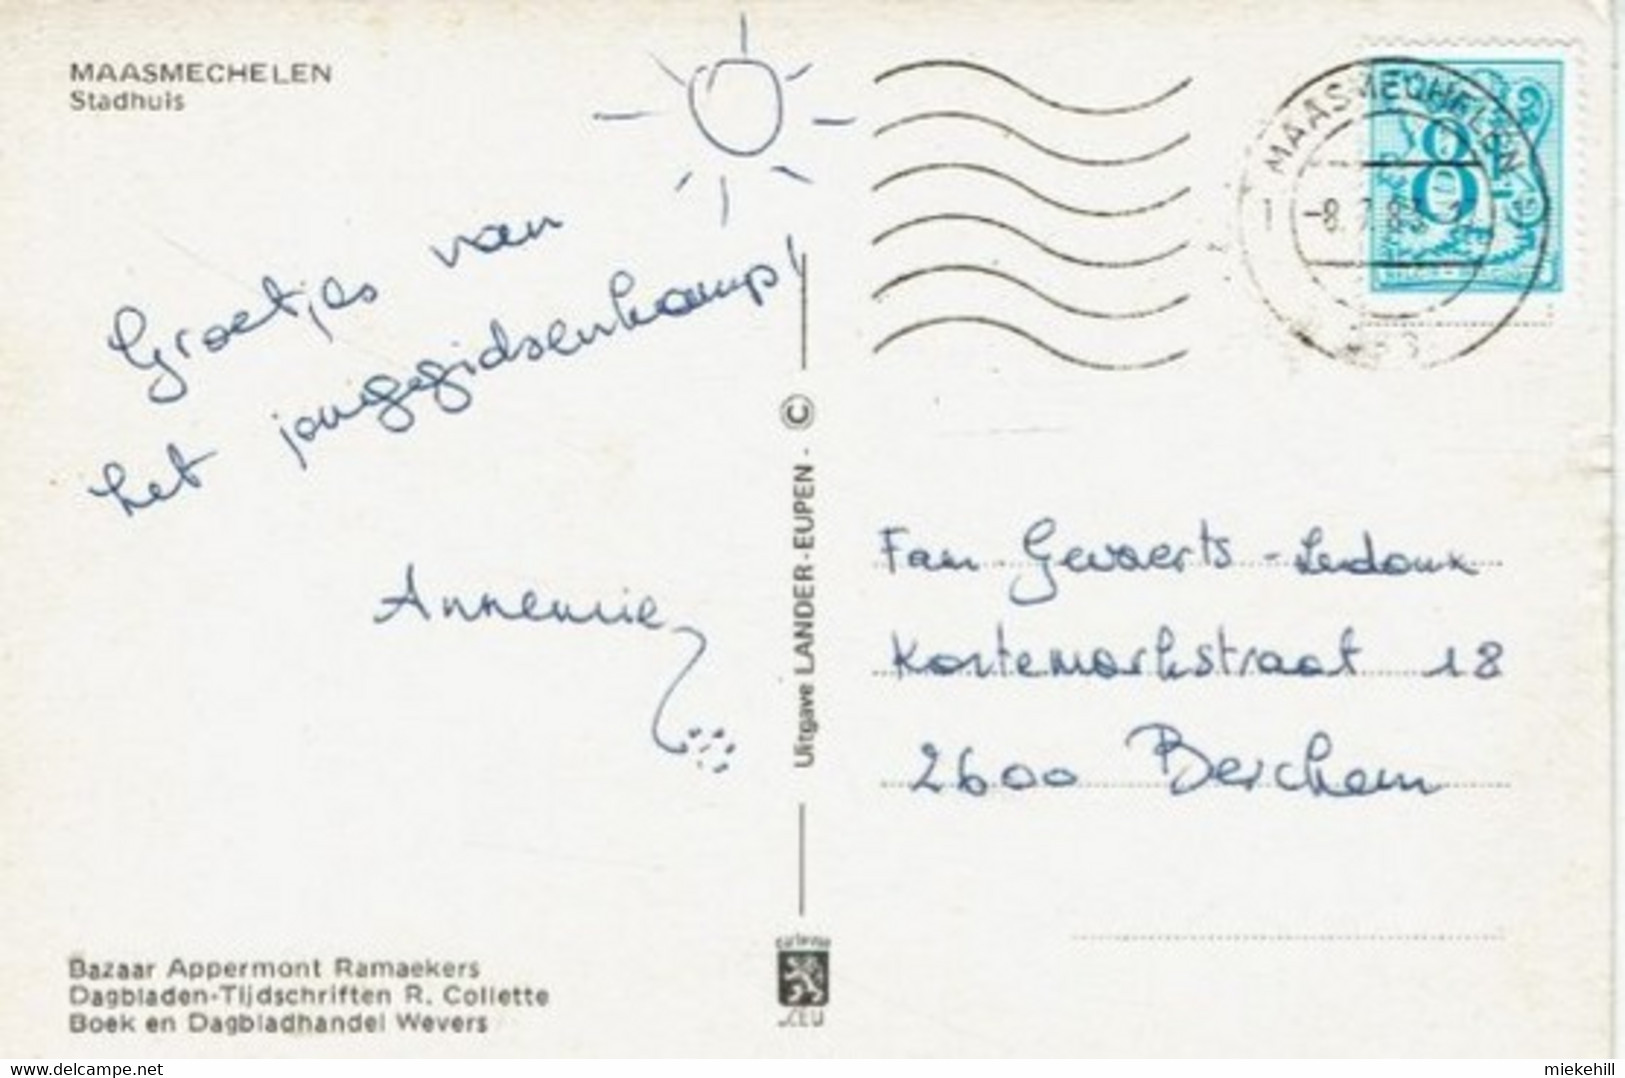 MAASMECHELEN
Stadhuis
Groetjes van
het jonggidsenkamp!
Annemie
Uitgave LANDER-EUPEN - ©
MAASMECHELEN
-8.7.8
8F
Fam Gevaerts - Ledoux
Kortemarkstraat 18
2600 Berchem
Bazaar Appermont Ramaekers
Dagbladen-Tijdschriften R. Collette
Boek en Dagbladhandel Wevers
LEU
miekehill